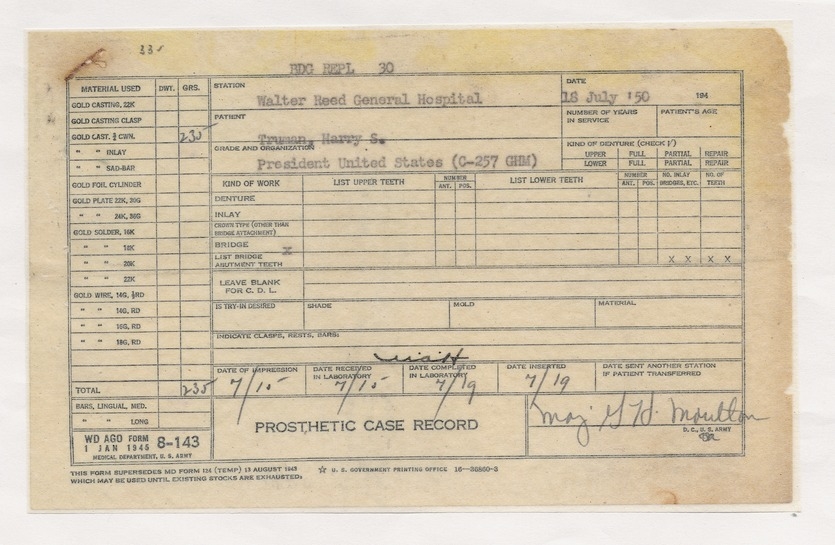 33
BDG REPL 30
MATERIAL USED DWT. GRS.
STATION
Walter Reed General Hospital
DATE
18 July '50 194
GOLD CASTING, 22K
GOLD CASTING CLASP
GOLD CAST. ¾ CWN. 235
" " INLAY
" " SAD-BAR
GOLD FOIL CYLINDER
GOLD PLATE 22K, 30G
" " 24K, 36G
GOLD SOLDER, 16K
" " 18K
" " 20K
" " 22K
GOLD WIRE, 14G, ½RD
" " 14G, RD
" " 16G, RD
" " 18G, RD
TOTAL 235
BARS, LINGUAL, MED.
" " LONG
PATIENT
Truman, Harry S.
NUMBER OF YEARS IN SERVICE
PATIENT'S AGE
GRADE AND ORGANIZATION
President United States (C-257 GHM)
KIND OF DENTURE (CHECK √)
UPPER FULL PARTIAL REPAIR
LOWER FULL PARTIAL REPAIR
KIND OF WORK LIST UPPER TEETH NUMBER ANT. POS. LIST LOWER TEETH NUMBER ANT. POS. NO. INLAY BRIDGES, ETC. NO. OF TEETH
DENTURE
INLAY
CROWN TYPE (OTHER THAN BRIDGE ATTACHMENT)
BRIDGE X
LIST BRIDGE ABUTMENT TEETH X X X X
LEAVE BLANK FOR C. D. L.
IS TRY-IN DESIRED SHADE MOLD MATERIAL
INDICATE CLASPS, RESTS, BARS:
DATE OF IMPRESSION 7/15
DATE RECEIVED IN LABORATORY 7/15
DATE COMPLETED IN LABORATORY 7/19
DATE INSERTED 7/19
DATE SENT ANOTHER STATION IF PATIENT TRANSFERRED
PROSTHETIC CASE RECORD
Maj. G H. Moulton
D. C., U. S. ARMY
WD AGO FORM 8-143
1 JAN 1945
MEDICAL DEPARTMENT, U. S. ARMY
THIS FORM SUPERSEDES MD FORM 124 (TEMP) 13 AUGUST 1943
WHICH MAY BE USED UNTIL EXISTING STOCKS ARE EXHAUSTED.
☆ U. S. GOVERNMENT PRINTING OFFICE 16—38860-2